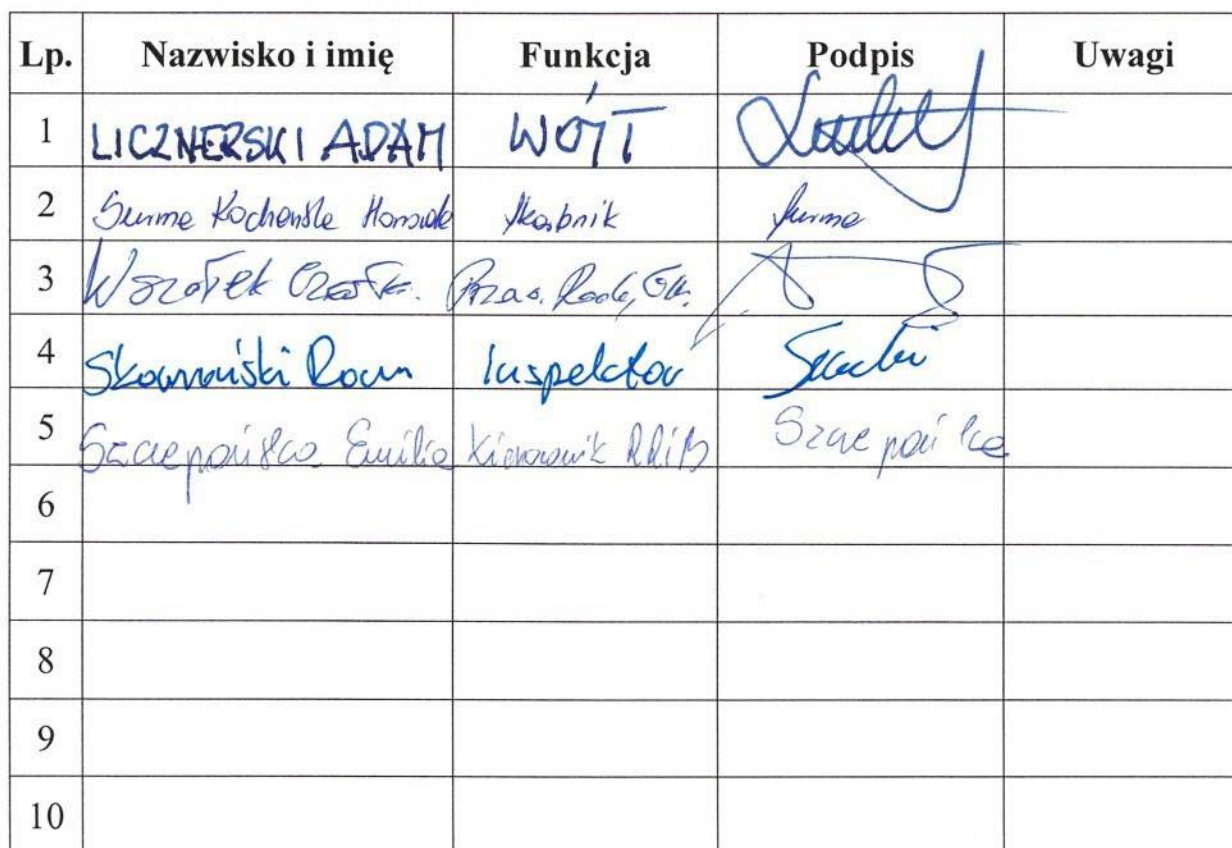 Lp. Nazwisko i imię Funkcja Podpis Uwagi
1 LICZNERSKI ADAM WÓJT
2 Surma Kochańska Skarbnik Surma
3 Wszołek Przew. Rady Gm.
4 Skowroński Inspektor
5 Szczepańska Emilia Kierownik RRiB Szczepańska
6
7
8
9
10